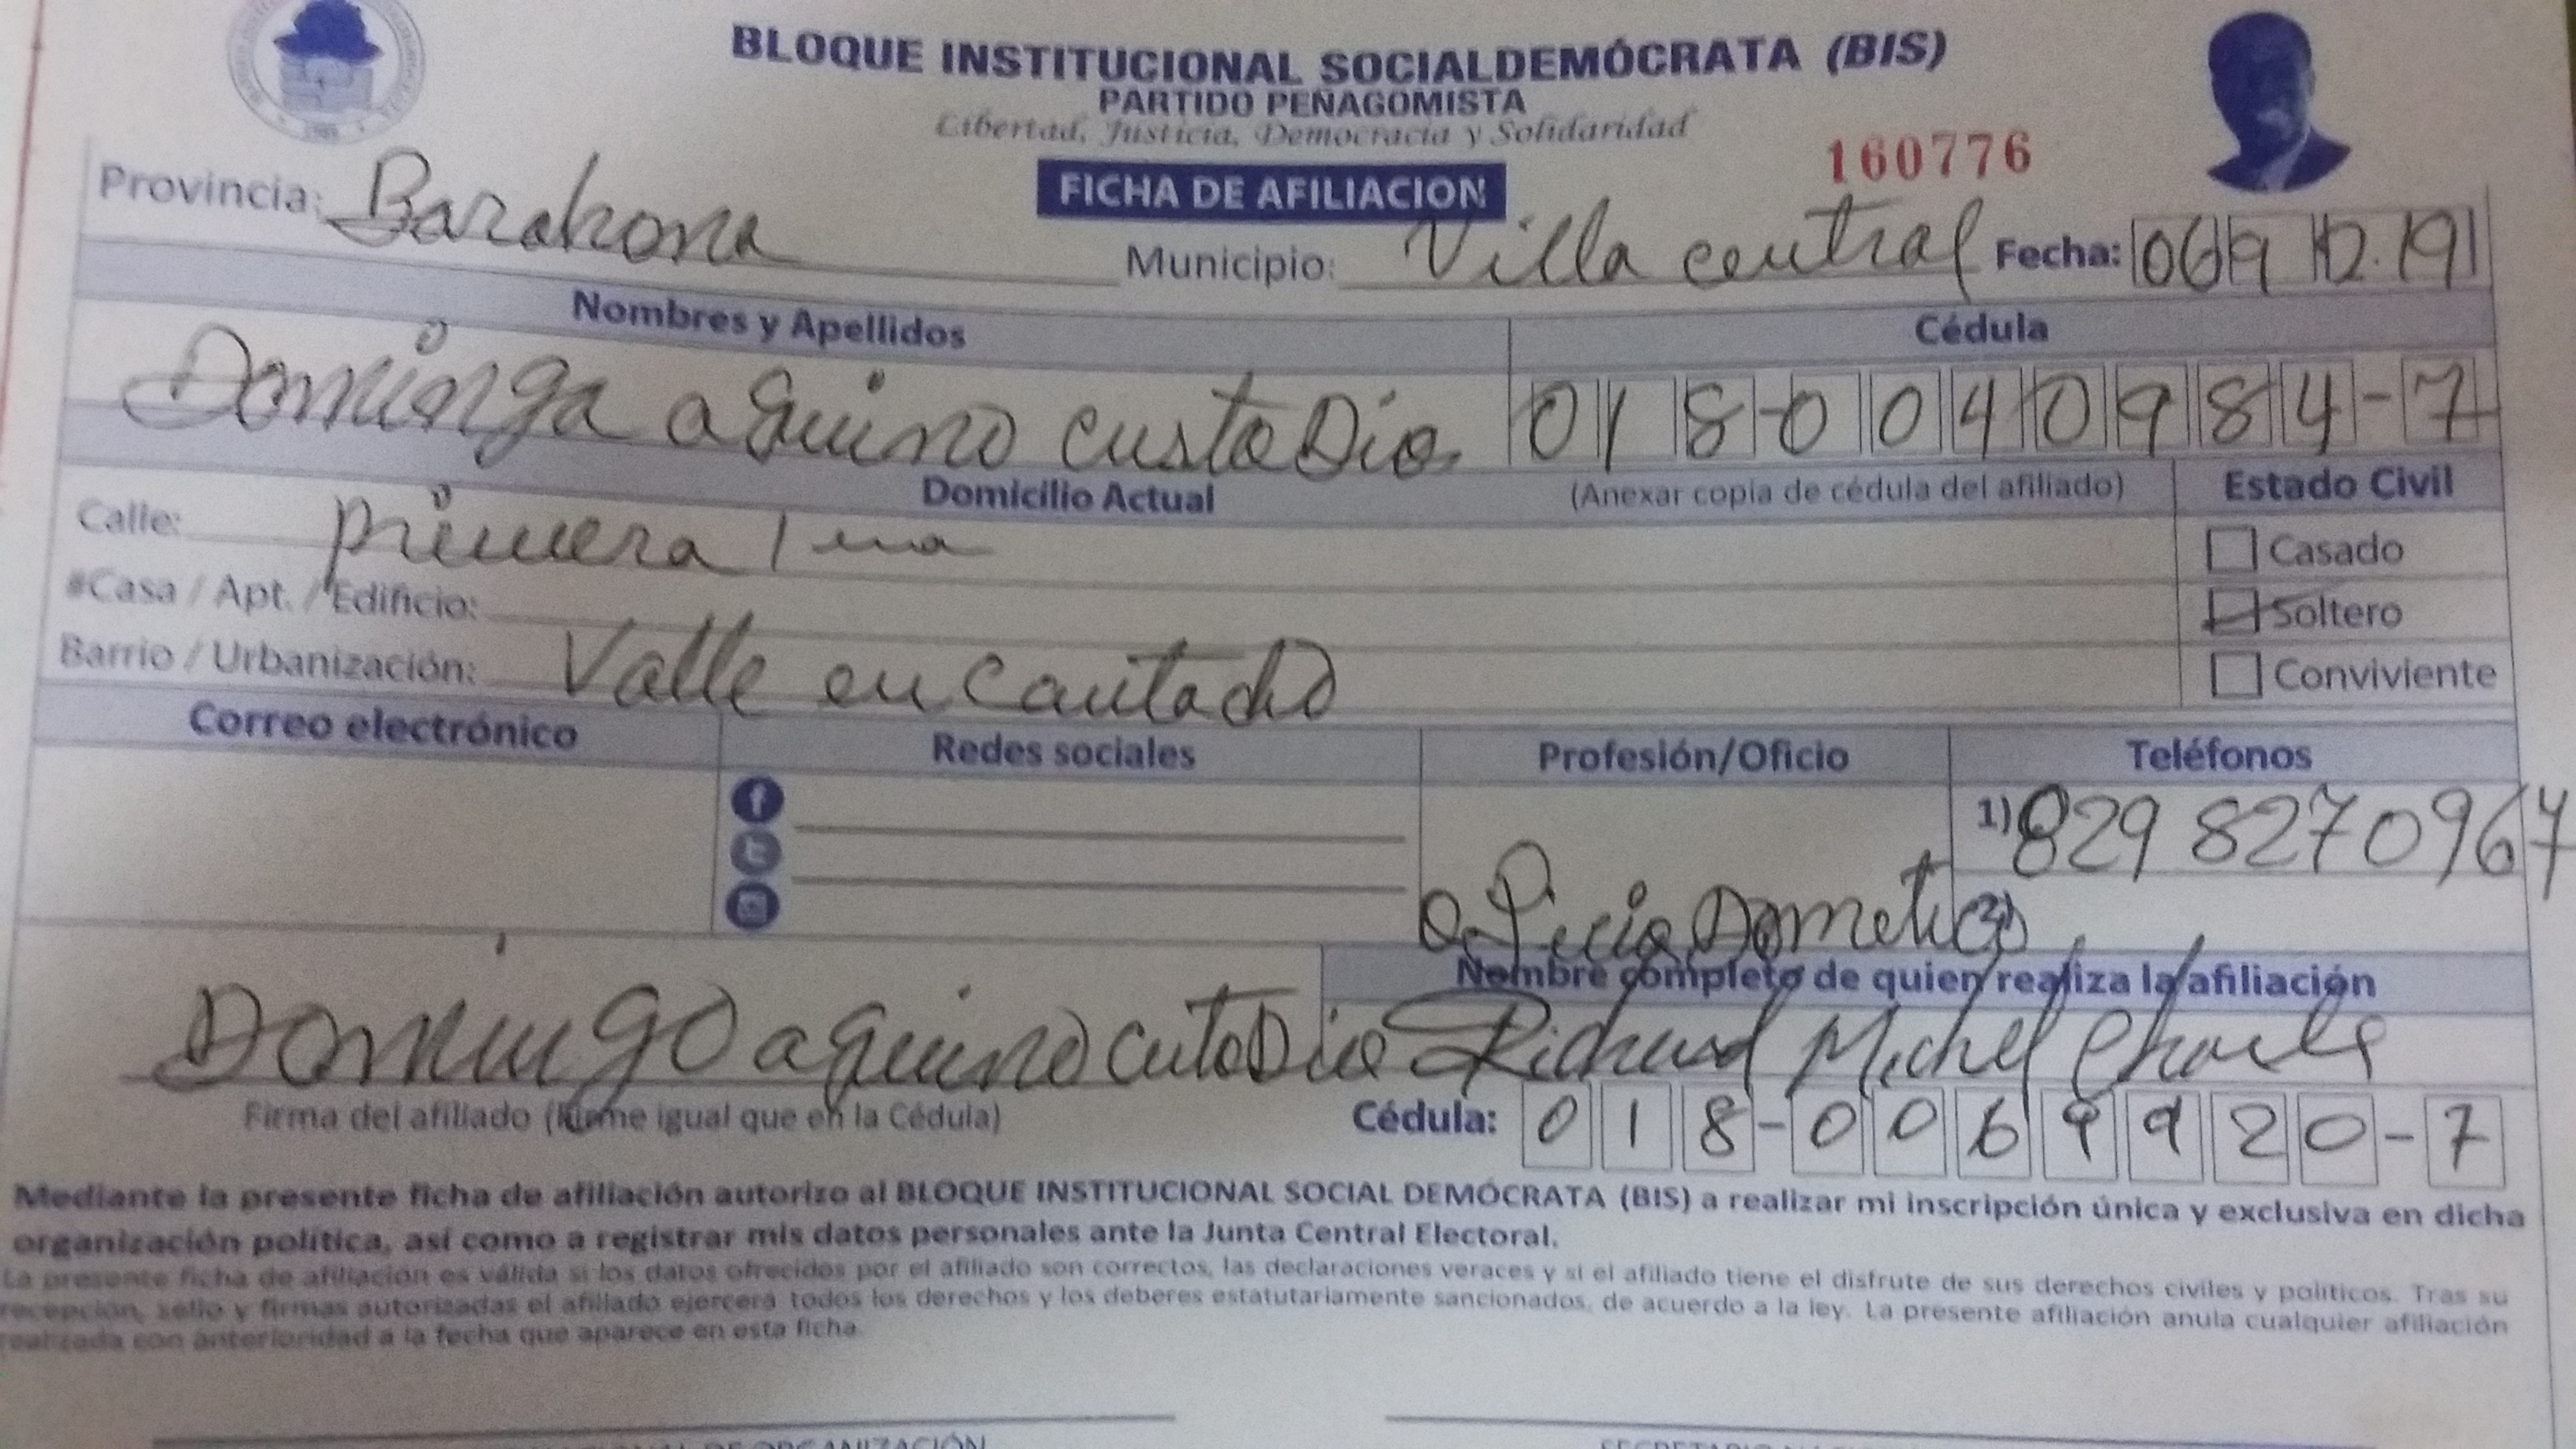 BLOQUE INSTITUCIONAL SOCIALDEMÓCRATA (BIS)
PARTIDO PEÑAGOMISTA
Libertad, Justicia, Democracia y Solidaridad
160776
FICHA DE AFILIACION
Provincia: Barahona Municipio: Villa central Fecha:
Nombres y Apellidos Cédula
Dominga aquino custoDio 018-0040984-7
Domicilio Actual (Anexar copia de cédula del afiliado) Estado Civil
Calle: primera 1 Casado
#Casa / Apt. / Edificio: Soltero
Barrio / Urbanización: Valle encantado Conviviente
Correo electrónico Redes sociales Profesión/Oficio Teléfonos
1) 829 827096
oficio Dometico 2)
Nombre completo de quien realiza la afiliación
Domingo aquino cutoDio Richard Michel Charls
Firma del afiliado (firme igual que en la Cédula) Cédula: 018-0069920-7
Mediante la presente ficha de afiliación autorizo al BLOQUE INSTITUCIONAL SOCIAL DEMÓCRATA (BIS) a realizar mi inscripción única y exclusiva en dicha
organización política, así como a registrar mis datos personales ante la Junta Central Electoral.
La presente ficha de afiliación es válida si los datos ofrecidos por el afiliado son correctos, las declaraciones veraces y si el afiliado tiene el disfrute de sus derechos civiles y políticos. Tras su
recepción, sello y firmas autorizadas el afiliado ejercerá todos los derechos y los deberes estatutariamente sancionados, de acuerdo a la ley. La presente afiliación anula cualquier afiliación
realizada con anterioridad a la fecha que aparece en esta ficha.